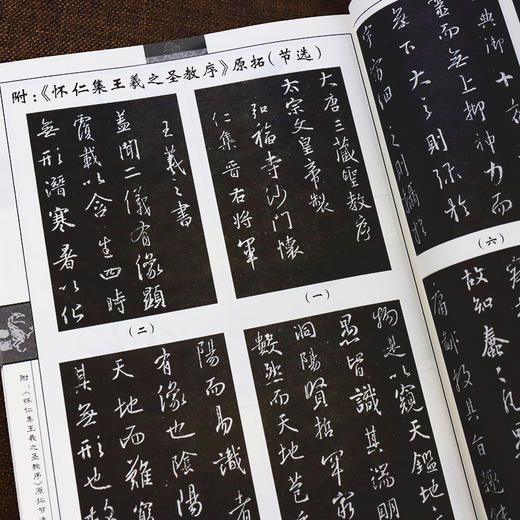 附:《怀仁集王羲之圣教序》原拓(节选)
大唐三藏聖教序
太宗文皇帝製
弘福寺沙门懷
仁集晋右将軍
(一)
王羲之書
蓋聞二儀有像顯
覆載以含生四時
無形潛寒暑以化
(二)
物是以窺天鑑地
愚皆識其端明
洞陽賢哲罕窮
數然而天地苞
陽而易識者
有像也陰陽
天地而難窮
其無形也故
典御十方
無上抑神力而
無下大之則弥於
宇宙細之則攝於
(六)
故知蠢蠢
庸鄙投其旨趣
附:《怀仁集王羲之圣教序》原拓节